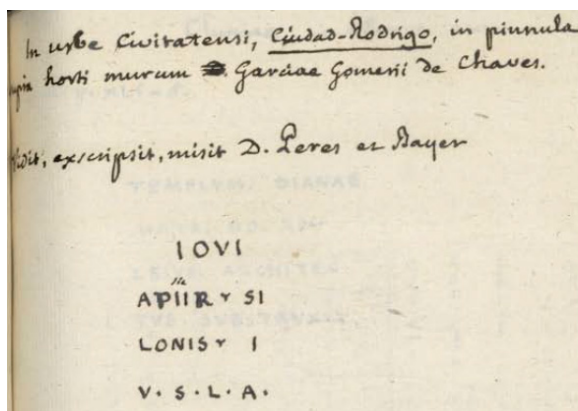 In urbe Civitatensi, Ciudad-Rodrigo, in pinnula
horti murum Garciae Gomerii de Chaves.
exscripsit, misit D. Peres et Bayer
IOVI
APIIR SI
LONIS I
V. S. L. A.